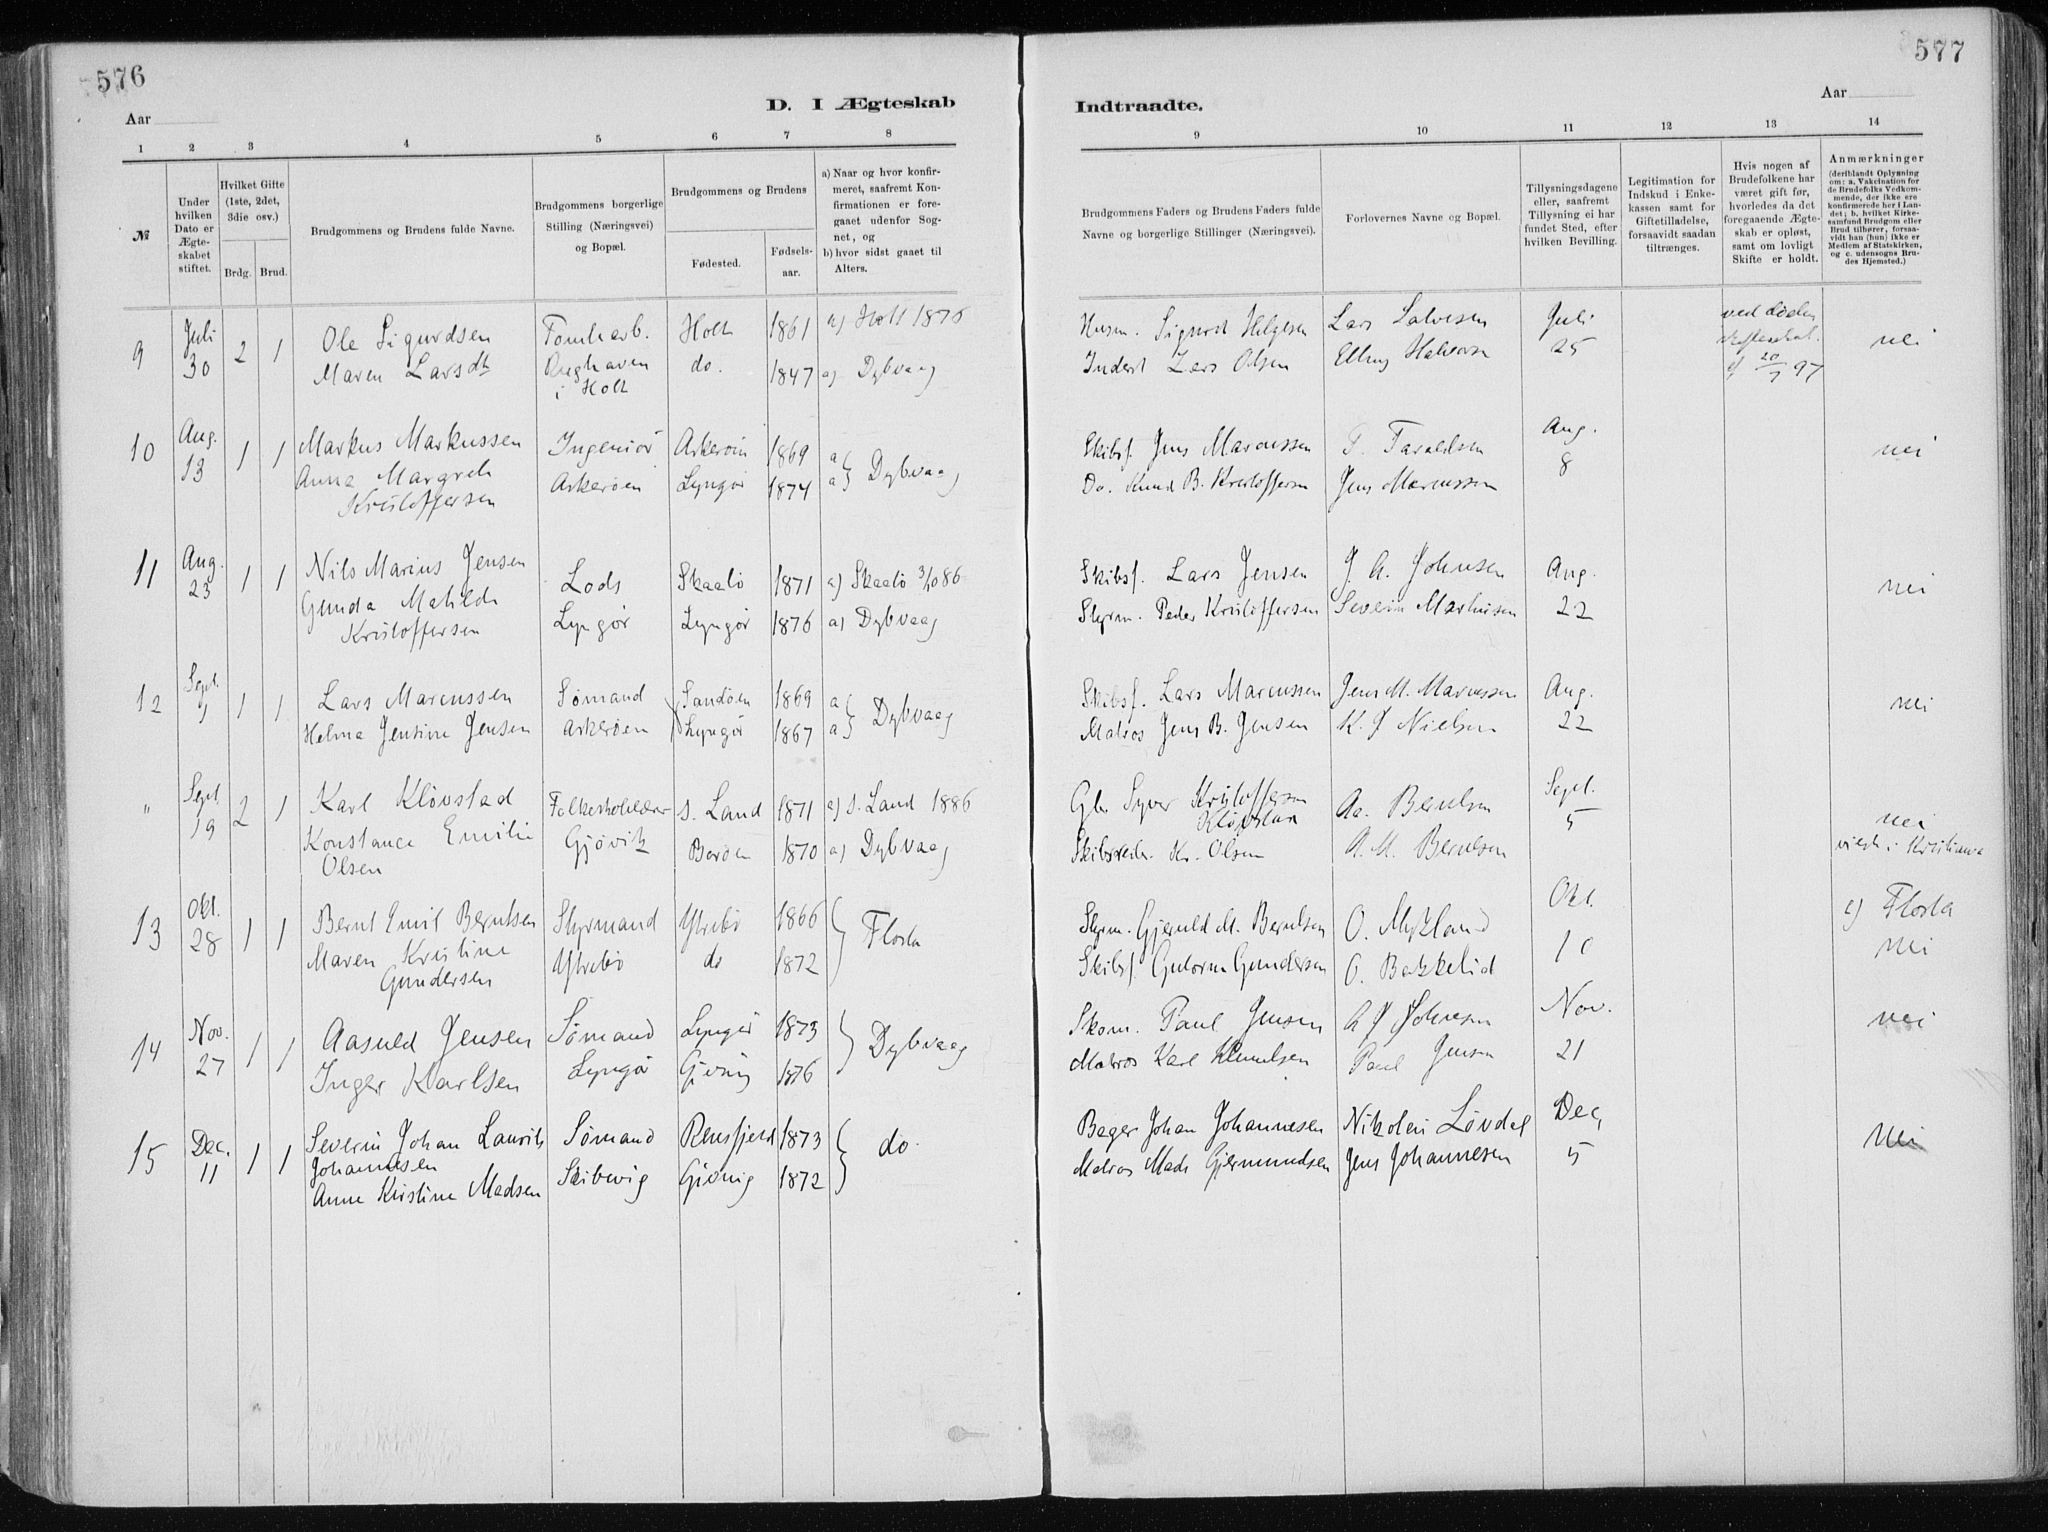 576
Aar
D. I Ægteskab
1 2 3 4 5 6 7 8
№
Under hvilken Dato er Ægteskabet stiftet.
Hvilket Gifte (1ste, 2det, 3die osv.)
Brdg. Brud.
Brudgommens og Brudens fulde Navne.
Brudgommens borgerlige Stilling (Næringsvei) og Bopæl.
Brudgommens og Brudens
Fødested.
Fødselsaar.
a) Naar og hvor konfirmeret, saafremt Konfirmationen er foregaaet udenfor Sognet, og
b) hvor sidst gaaet til Alters.
9 Juli 30 2 1 Ole Sigurdsen Holt 1861 a) Holt 1876
Maren Larsdt i Holt do. 1847 a) Dybvaag
10 Aug. 13 1 1 Markus Markussen Ingeniør Askerøen 1869 a
Anna Margrete Askerøen Lyngør 1874 a } Dybvaag
Kristoffersen
11 Aug. 23 1 1 Nils Marius Jensen Lods Skaatø 1871 a) Skaatø 3/10 86
Gunda Matilde Lyngør Lyngør 1876 a) Dybvaag
Kristoffersen
12 Sept. 1 1 1 Lars Marcussen Sømand Sandøen 1869 a
Helma Jensine Jensen Askerøen Lyngør 1867 a } Dybvaag
" Sept. 19 2 1 Karl Kløvstad Folkeskolelærer S. Land 1871 a) S. Land 1886
Konstance Emilie Gjøvik Borøen 1870 a) Dybvaag
Olsen
13 Okt. 28 1 1 Bernt Emil Berntsen Styrmand Ytrebø 1866
Maren Kristine Ytrebø do 1872 } Flosta
Gundersen
14 Nov. 27 1 1 Aasuld Jensen Sømand Lyngør 1873
Inger Karlsen Lyngør Gjeving 1876 } Dybvaag
15 Dec. 11 1 1 Severin Johan Laurits Sømand 1873
Johannesen } do.
Anne Kristine Madsen Skibvig Gjeving 1872
577
Aar
Indtraadte.
9 10 11 12 13 14
Brudgommens Faders og Brudens Faders fulde Navne og borgerlige Stillinger (Næringsvei).
Forlovernes Navne og Bopæl.
Tillysningsdagene eller, saafremt Tillysning ei har fundet Sted, efter hvilken Bevilling.
Legitimation for Indskud i Enkekassen samt for Giftetilladelse, forsaavidt saadan tiltrænges.
Hvis nogen af Brudefolkene har været gift før, hvorledes da det foregaaende Ægteskab er opløst, samt om lovligt Skifte er holdt.
Anmærkninger (deriblandt Oplysning om: a. Vakcination for de Brudefolks Vedkommende, der ikke ere konfirmerede her i Landet; b. hvilket Kirkesamfund Brudgom eller Brud tilhører, forsaavidt han (hun) ikke er Medlem af Statskirken, og c. udensogns Brudes Hjemsted.)
Husm. Sigurd Helgesen Lars Salvesen Juli ved Døden
Inderst Lars Olsen Elling Halvorsen 25 Skifteattest nei
af 20/7 97
Skibsf. Jens Marcussen T. Taraldsen Aug.
Do. Knud B. Kristoffersen Jens Marcussen 8 nei
Skibsf. Lars Jensen J. A. Johnsen Aug.
Styrm. Peder Kristoffersen Severin Markusen 22 nei
Skibsf. Lars Marcussen Jens M. Marcussen Aug.
Matros Jens B. Jensen K. J Nielsen 22 nei
Gbr. Syver Kristoffersen Aa. Berntsen Sept.
Kløvstad 5 nei
Skibsreder Kr. Olsen A. M. Berntsen viede i Kristiania
Styrm. Gjeruld M. Berntsen O. Mykland Okt. c) Flosta
Skibsf. Gutorm Gundersen O. Bakkelid 10 nei
Skom. Paul Jensen A J Johnsen Nov. nei
Matros Karl Knudsen Paul Jensen 21
Bager Johan Johannesen Nikolai Løvdal Dec,
Matros Mads Gjermundsen Jens Johannesen 5 nei